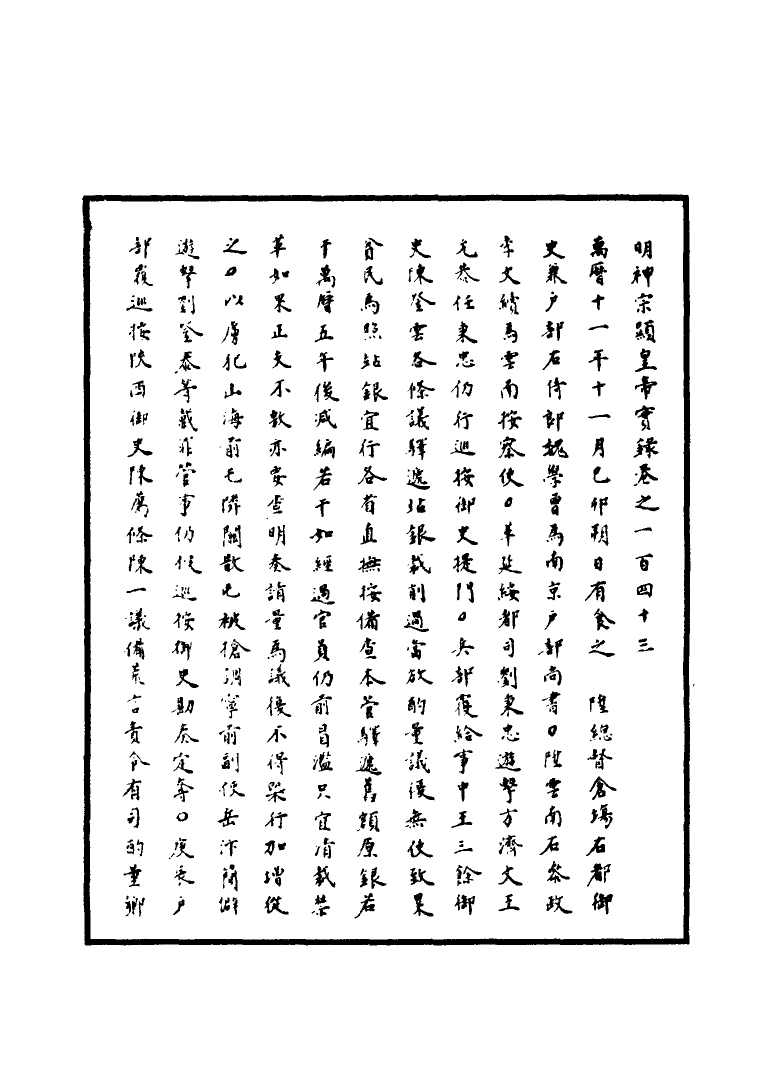 明神宗顯皇帝實錄卷之一百四十三
萬曆十一年十一月己卯朔日有食之　陞總督倉塲右都御
史兼户部右侍郎魏學曾爲南京户部尚書○陞雲南右叅政
李文續爲雲南按察使○革延綏都司劉東忠遊擊方濟文王
允恭任東忠仍行巡按御史提問○兵部覆給事中王三餘御
史陳登雲各條議驛遞站銀裁削過當欲酌量議復無使致累
貧民爲照站銀宜行各省直撫按備查本管驛遞舊額原銀若
干萬曆五年後减編若干如經過官員仍前冒濫只宜凊裁禁
革如果正支不敷亦要查明奏請量爲議復不得槩行加增從
之○以虜犯山海前屯隣關散屯被搶調寧前副使岳汴簡僻
遊擊劉登泰等戴罪管事仍候巡按御史勘奏定奪○庚辰户
部覆巡按陝西御史陳薦條陳一議備荒言責令有司酌量鄉